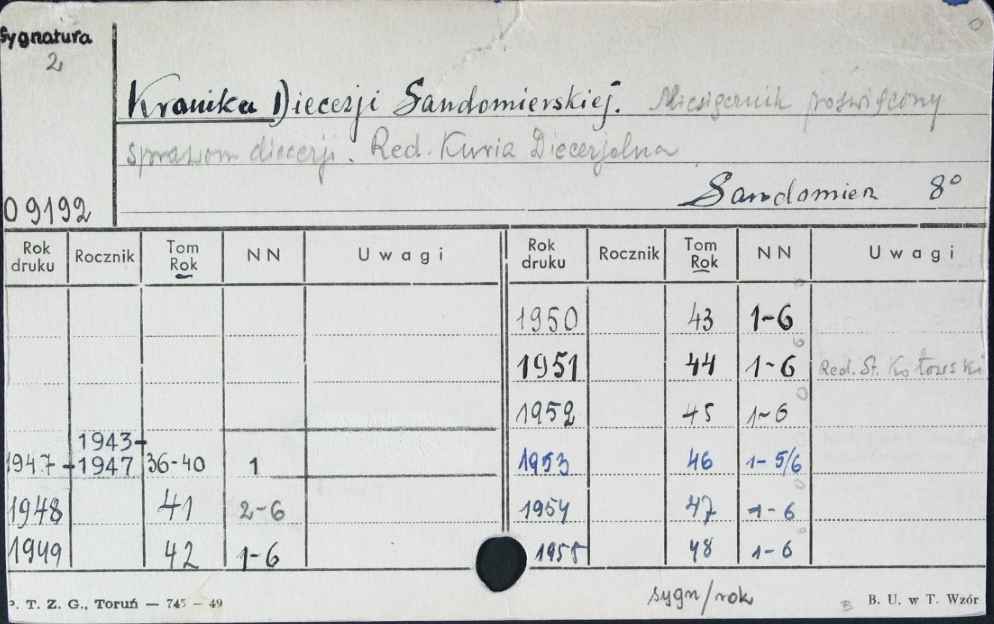 Sygnatura
2
Kronika Diecezji Sandomierskiej. Miesięcznik poświęcony
sprawom diecezji. Red. Kuria Diecezjalna
Sandomierz 8°
09192
Rok druku Rocznik Tom Rok NN Uwagi Rok druku Rocznik Tom Rok NN Uwagi
1950 43 1-6
1951 44 1-6 Red. St.
1952 45 1-6
1943-
1947 -1947 36-40 1 1953 46 1-5/6
1948 41 2-6 1954 47 1-6
1949 42 1-6 1955 48 1-6
sygn/rok
P. T. Z. G., Toruń — 745 — 49 B. U. w T. Wzór